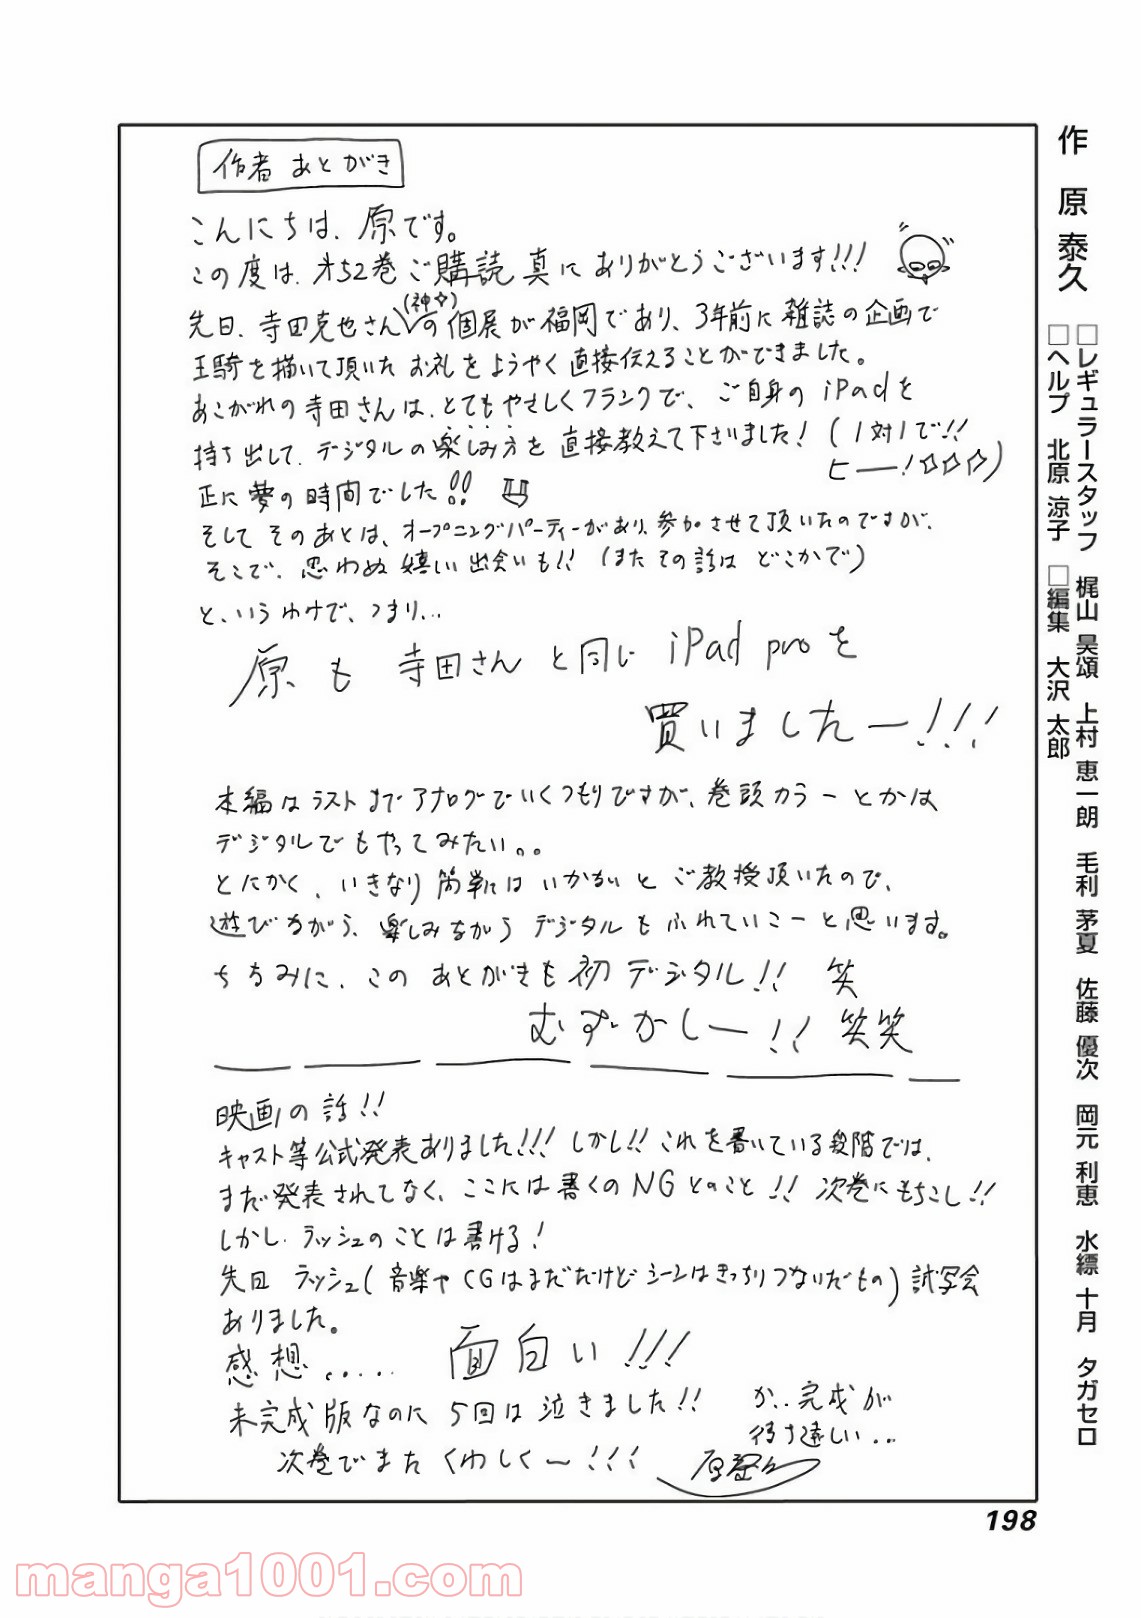 作者 あとがき
こんにちは、原です。
この度は、㐧52巻ご購読 真にありがとうございます!!!
先日、寺田克也さん(神☆)の個展が福岡であり、3年前に雑誌の企画で
王騎を描いて頂いたお礼をようやく直接伝えることができました。
あこがれの寺田さんは、とてもやさしくフランクで、ご自身の iPadを
持ち出して、デジタルの楽しみ方を直接教えて下さいました! (1対1で!!
ヒー—!☆☆☆)
正に夢の時間でした!!
そしてそのあとは、オープニングパーティーがあり、参加させて頂いたのですが、
そこで、思わぬ嬉しい出会いも!! (またその話はどこかで)
と、いうわけで、つまり...
原も 寺田さんと同じ iPad proを
買いましたー!!!
本編はラストまでアナログでいくつもりですが、巻頭カラーとかは
デジタルでもやってみたい。。
とにかく、いきなり簡単にはいかないとご教授頂いたので、
遊びながら、楽しみながらデジタルもふれていこーと思います。
ちなみに、このあとがきも初デジタル!! 笑
むずかしー!! 笑笑
映画の話!!
キャスト等公式発表ありました!!! しかし!! これを書いている段階では、
まだ発表されてなく、ここには書くのNGとのこと!! 次巻にもちこし!!
しかし、ラッシュのことは書ける!
先日 ラッシュ(音楽やCGはまだだけどシーンはきっちりつないだもの)試写会
ありました。
感想..... 面白い!!!
未完成版なのに5回は泣きました!! か..完成が
待ち遠しい...
次巻でまたくわしく〜!!! 原泰久
作 原 泰久
□レギュラースタッフ 梶山 昊頌 上村 恵一朗 毛利 茅夏 佐藤 優次 岡元 利恵 水縹 十月 タガセロ
□ヘルプ 北原 涼子 □編集 大沢 太郎
198
manga1001.com